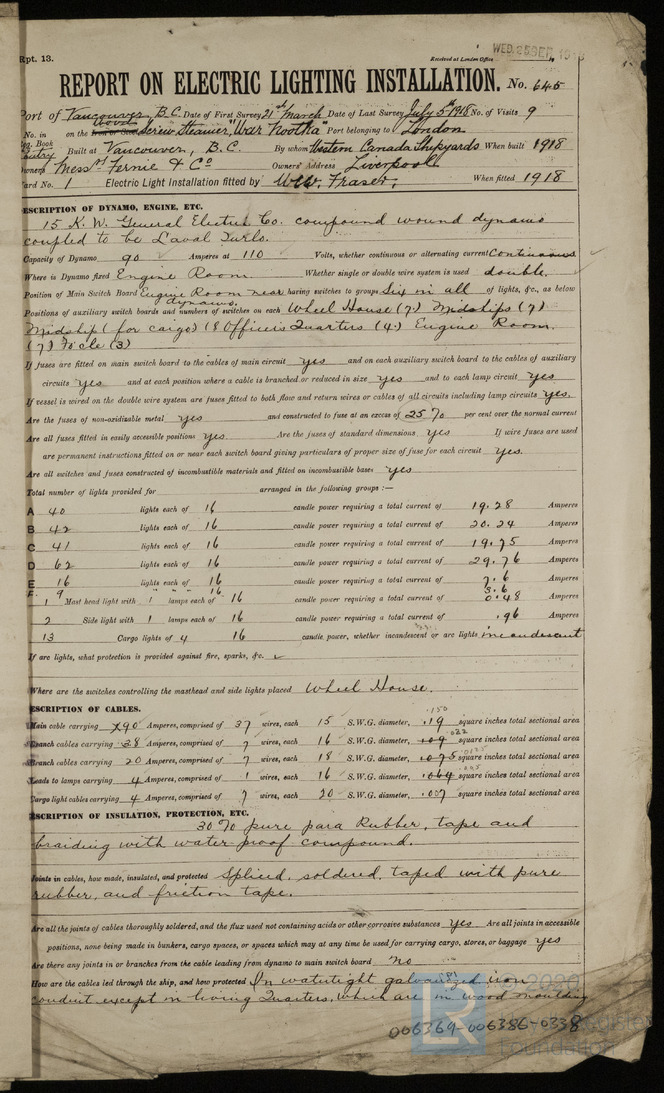 Rpt. 13.
Received at London Office
WED. 25 SEP 1918
REPORT ON ELECTRIC LIGHTING INSTALLATION. No. 645
Port of Vancouver, B.C. Date of First Survey 21st March Date of Last Survey July 5th 1918 No. of Visits 9
No. in on the Wood Screw Steamer "War Nootka" Port belonging to London
Reg. Book Built at Vancouver, B.C. By whom Western Canada Shipyards When built 1918
Owners Messrs Fernie & Co Owners' Address Liverpool
Card No. 1 Electric Light Installation fitted by W.W. Fraser, When fitted 1918
DESCRIPTION OF DYNAMO, ENGINE, ETC.
15 K.W. General Electric Co. compound wound dynamo
coupled to be Laval Turbo.
Capacity of Dynamo 90 Amperes at 110 Volts, whether continuous or alternating current Continuous
Where is Dynamo fixed Engine Room Whether single or double wire system is used double.
Position of Main Switch Board Engine Room near dynamo. having switches to groups Six in all of lights, &c., as below
Positions of auxiliary switch boards and numbers of switches on each Wheel House (7) Midships (7)
Midship (for cargo) (8 Officers Quarters (4) Engine Room
(7) Fo'cle (3)
If fuses are fitted on main switch board to the cables of main circuit yes and on each auxiliary switch board to the cables of auxiliary
circuits yes and at each position where a cable is branched or reduced in size yes and to each lamp circuit yes
If vessel is wired on the double wire system are fuses fitted to both flow and return wires or cables of all circuits including lamp circuits yes.
Are the fuses of non-oxidizable metal yes and constructed to fuse at an excess of 25 % per cent over the normal current
Are all fuses fitted in easily accessible positions yes Are the fuses of standard dimensions yes If wire fuses are used
are permanent instructions fitted on or near each switch board giving particulars of proper size of fuse for each circuit yes.
Are all switches and fuses constructed of incombustible materials and fitted on incombustible bases yes
Total number of lights provided for arranged in the following groups :—
A 40 lights each of 16 candle power requiring a total current of 19.28 Amperes
B 42 lights each of 16 candle power requiring a total current of 20.24 Amperes
C 41 lights each of 16 candle power requiring a total current of 19.75 Amperes
D 62 lights each of 16 candle power requiring a total current of 29.76 Amperes
E 16 lights each of 16 candle power requiring a total current of 7.6 Amperes
F. 9 " " " 16 3.6
1 Mast head light with 1 lamps each of 16 candle power requiring a total current of 0.48 Amperes
2 Side light with 1 lamps each of 16 candle power requiring a total current of .96 Amperes
13 Cargo lights of 4 16 candle power, whether incandescent or arc lights incandescent
If arc lights, what protection is provided against fire, sparks, &c.
Where are the switches controlling the masthead and side lights placed Wheel House.
DESCRIPTION OF CABLES.
Main cable carrying 90 Amperes, comprised of 37 wires, each 15 S.W.G. diameter, .19 .150 square inches total sectional area
Branch cables carrying 38 Amperes, comprised of 7 wires, each 16 S.W.G. diameter, .109 .022 square inches total sectional area
Branch cables carrying 20 Amperes, comprised of 7 wires, each 18 S.W.G. diameter, .075 square inches total sectional area
Leads to lamps carrying 4 Amperes, comprised of 1 wires, each 16 S.W.G. diameter, .064 square inches total sectional area
Cargo light cables carrying 4 Amperes, comprised of 7 wires, each 20 S.W.G. diameter, .007 square inches total sectional area
DESCRIPTION OF INSULATION, PROTECTION, ETC.
30 % pure para Rubber, tape and
braiding with water proof compound.
Joints in cables, how made, insulated, and protected Spliced, soldered, taped with pure
rubber, and friction tape.
Are all the joints of cables thoroughly soldered, and the flux used not containing acids or other corrosive substances yes Are all joints in accessible
positions, none being made in bunkers, cargo spaces, or spaces which may at any time be used for carrying cargo, stores, or baggage yes
Are there any joints in or branches from the cable leading from dynamo to main switch board no
How are the cables led through the ship, and how protected In watertight galvanized iron
conduit except in living Quarters, which are in wood moulding
© 2020
006369-006386-0338
Foundation